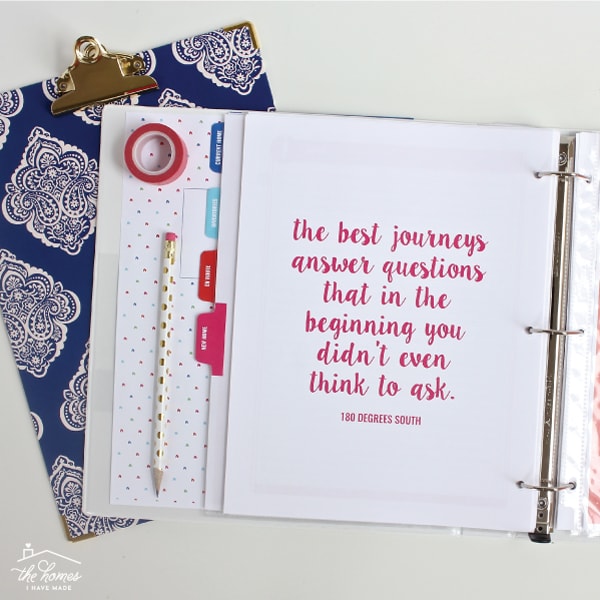 CURRENT HOME
ON MOVING
NEW HOME
the best journeys
answer questions
that in the
beginning you
didn't even
think to ask.
180 DEGREES SOUTH
the homes
I HAVE MADE